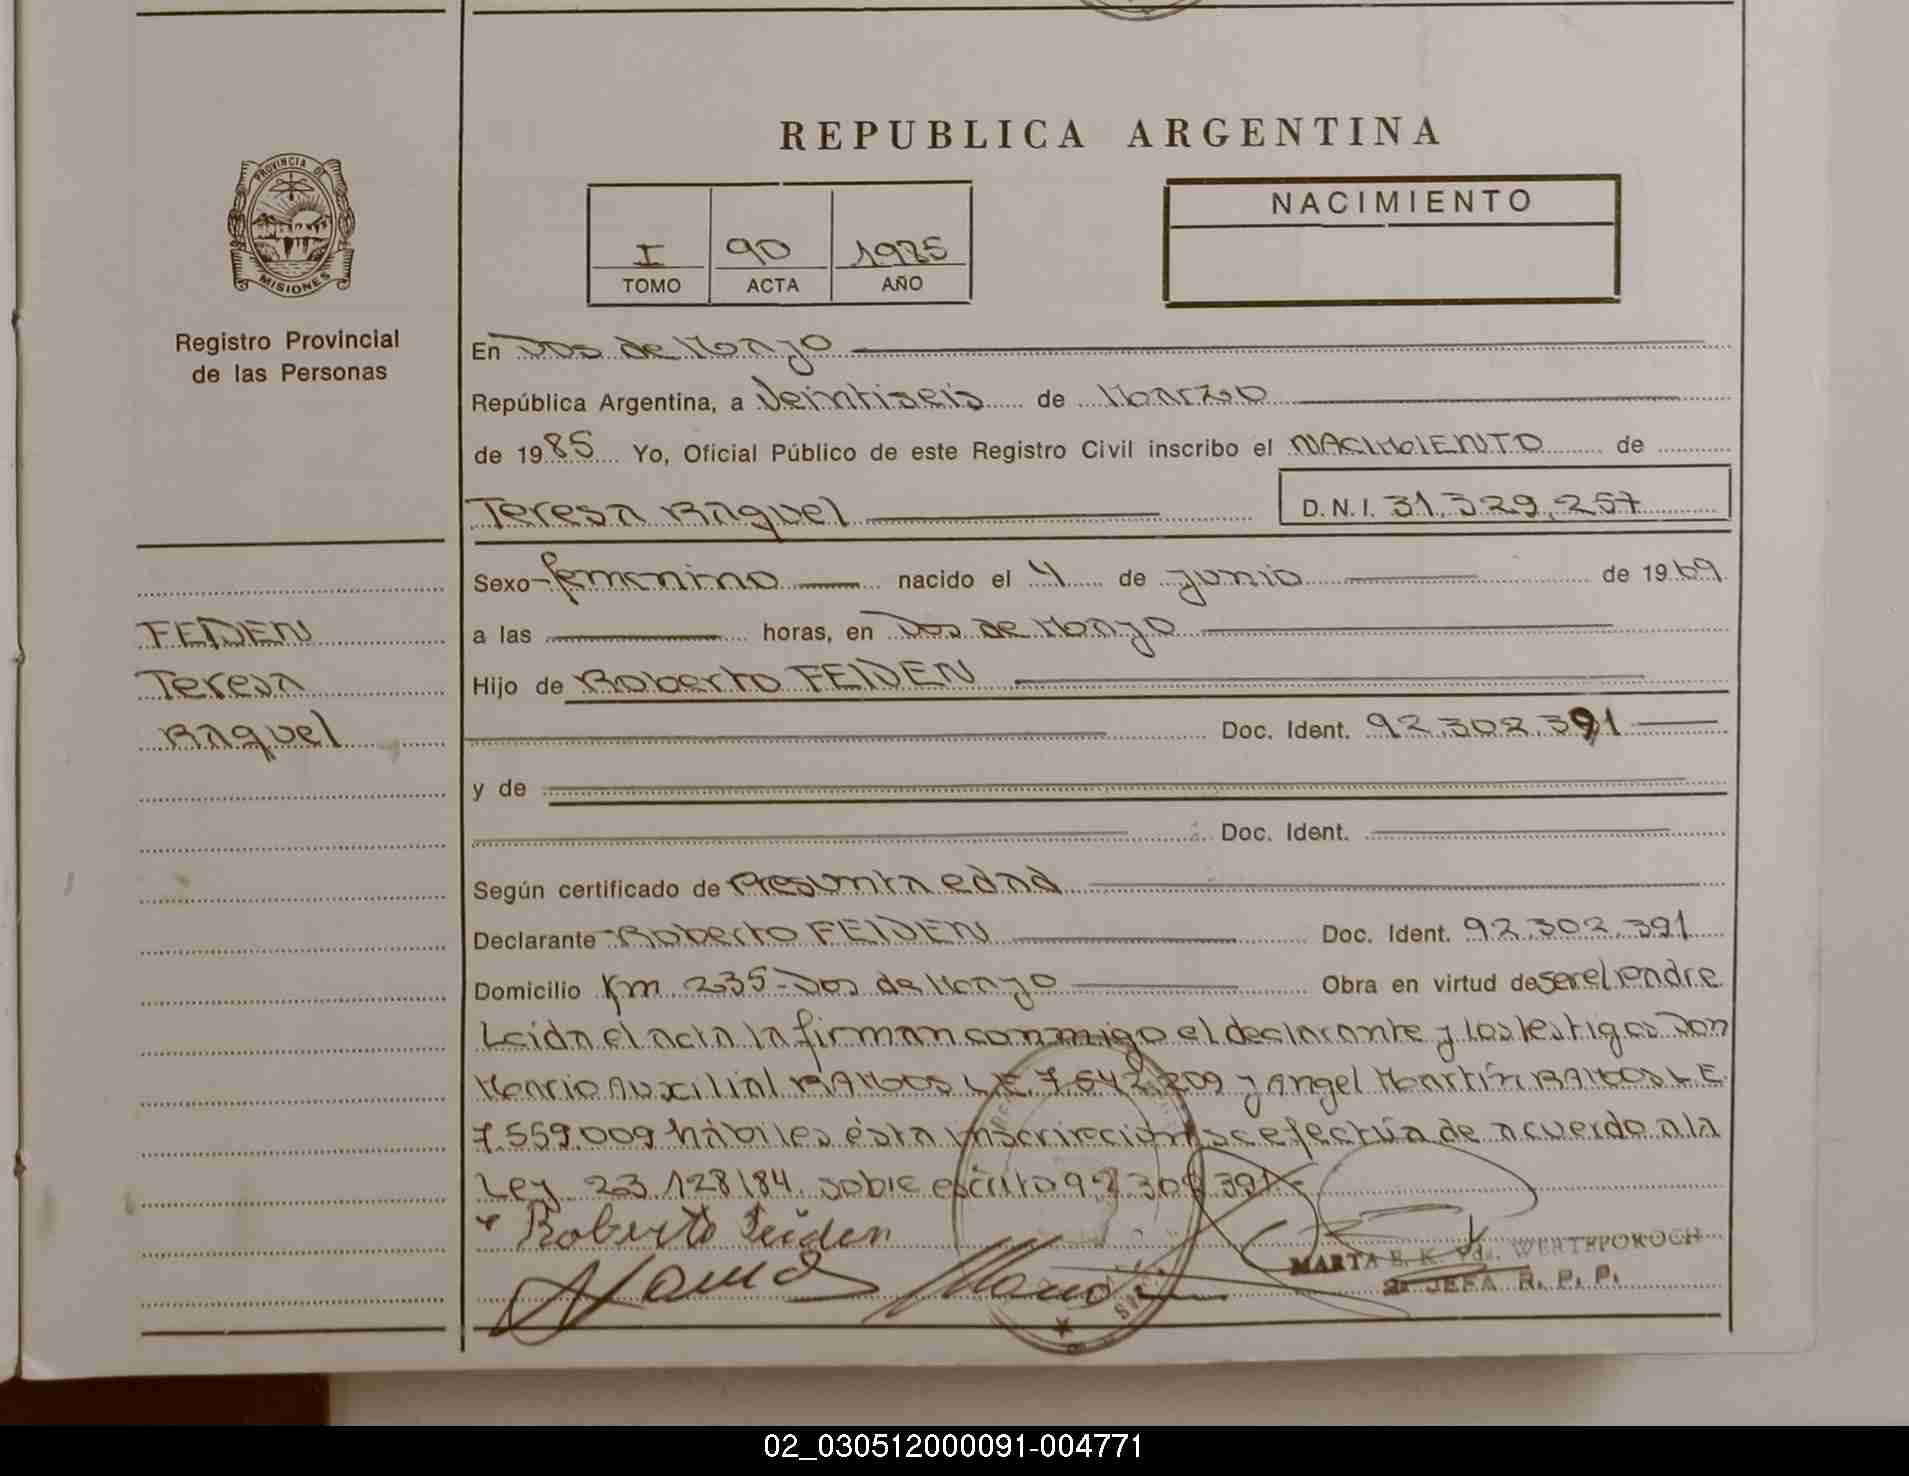 REPUBLICA ARGENTINA
PROVINCIA DE
MISIONES
Registro Provincial
de las Personas
I 90 1985
TOMO ACTA AÑO
NACIMIENTO
En Dos de Mayo
República Argentina, a Veintiseis de Marzo
de 1985 Yo, Oficial Público de este Registro Civil inscribo el NACIMIENTO de
Teresa Raquel D.N.I. 31.329.257
FEIDEN
Teresa
Raquel
Sexo femenino nacido el 4 de junio de 1969
a las horas, en Dos de Mayo
Hijo de Roberto FEIDEN
Doc. Ident. 92.302.391
y de
Doc. Ident.
Según certificado de Presunta edad
Declarante Roberto FEIDEN Doc. Ident. 92.302.391
Domicilio Km 235-Dos de Mayo Obra en virtud de ser el Padre
Leida el acta la firman conmigo el declarante y los testigos Don
Mario Auxilial RAMOS L.E. 7.642.209 y Angel Martín RAMOS L.E.
7.559.009 hábiles ésta inscripción se efectúa de acuerdo a la
Ley 23.128/84. sobre escrito 92.302.391
Roberto Feiden
MARTA E. K. Vda. WERTEPOROCH
JEFA R. P. P.
02_030512000091-004771